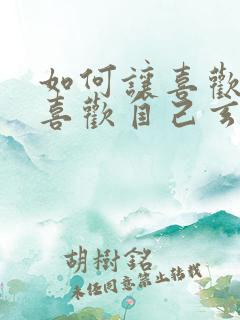 如何讓喜歡
喜歡自己
胡樹銘
未經同意禁止轉載